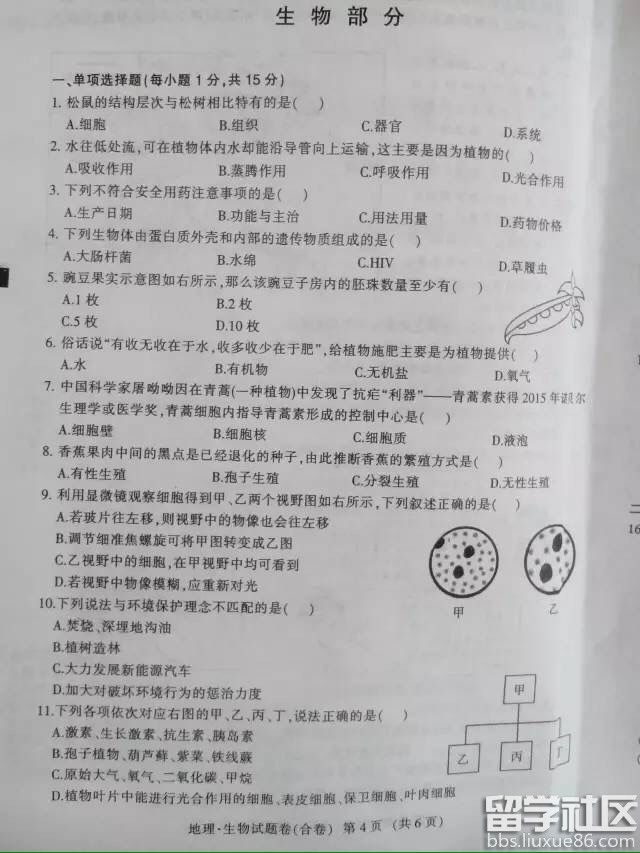 生物部分
一、单项选择题(每小题1分,共15分)
1. 松鼠的结构层次与松树相比特有的是( )
A.细胞 B.组织 C.器官 D.系统
2. 水往低处流,可在植物体内水却能沿导管向上运输,这主要是因为植物的( )
A.吸收作用 B.蒸腾作用 C.呼吸作用 D.光合作用
3. 下列不符合安全用药注意事项的是( )
A.生产日期 B.功能与主治 C.用法用量 D.药物价格
4. 下列生物体由蛋白质外壳和内部的遗传物质组成的是( )
A.大肠杆菌 B.水绵 C.HIV D.草履虫
5. 豌豆果实示意图如右所示,那么该豌豆子房内的胚珠数量至少有( )
A.1枚 B.2枚
C.5枚 D.10枚
6. 俗话说“有收无收在于水,收多收少在于肥”,给植物施肥主要是为植物提供( )
A.水 B.有机物 C.无机盐 D.氧气
7. 中国科学家屠呦呦因在青蒿(一种植物)中发现了抗疟“利器”——青蒿素获得2015年诺贝尔
生理学或医学奖,青蒿细胞内指导青蒿素形成的控制中心是( )
A.细胞壁 B.细胞核 C.细胞质 D.液泡
8. 香蕉果肉中间的黑点是已经退化的种子,由此推断香蕉的繁殖方式是( )
A.有性生殖 B.孢子生殖 C.分裂生殖 D.无性生殖
9. 利用显微镜观察细胞得到甲、乙两个视野图如右所示,下列叙述正确的是( )
A.若玻片往左移,则视野中的物像也会往左移
B.调节细准焦螺旋可将甲图转变成乙图
C.乙视野中的细胞,在甲视野中均可看到
D.若视野中物像模糊,应重新对光
甲 乙
10.下列说法与环境保护理念不匹配的是( )
A.焚烧、深埋地沟油
B.植树造林
C.大力发展新能源汽车
D.加大对破坏环境行为的惩治力度
11.下列各项依次对应右图的甲、乙、丙、丁,说法正确的是( )
A.激素、生长激素、抗生素、胰岛素
B.孢子植物、葫芦藓、紫菜、铁线蕨
C.原始大气、氧气、二氧化碳、甲烷
D.植物叶片中能进行光合作用的细胞、表皮细胞、保卫细胞、叶肉细胞
甲
乙 丙 丁
地理·生物试题卷(合卷) 第4页 (共6页)
16
留学社区
bbs.liuxue86.com